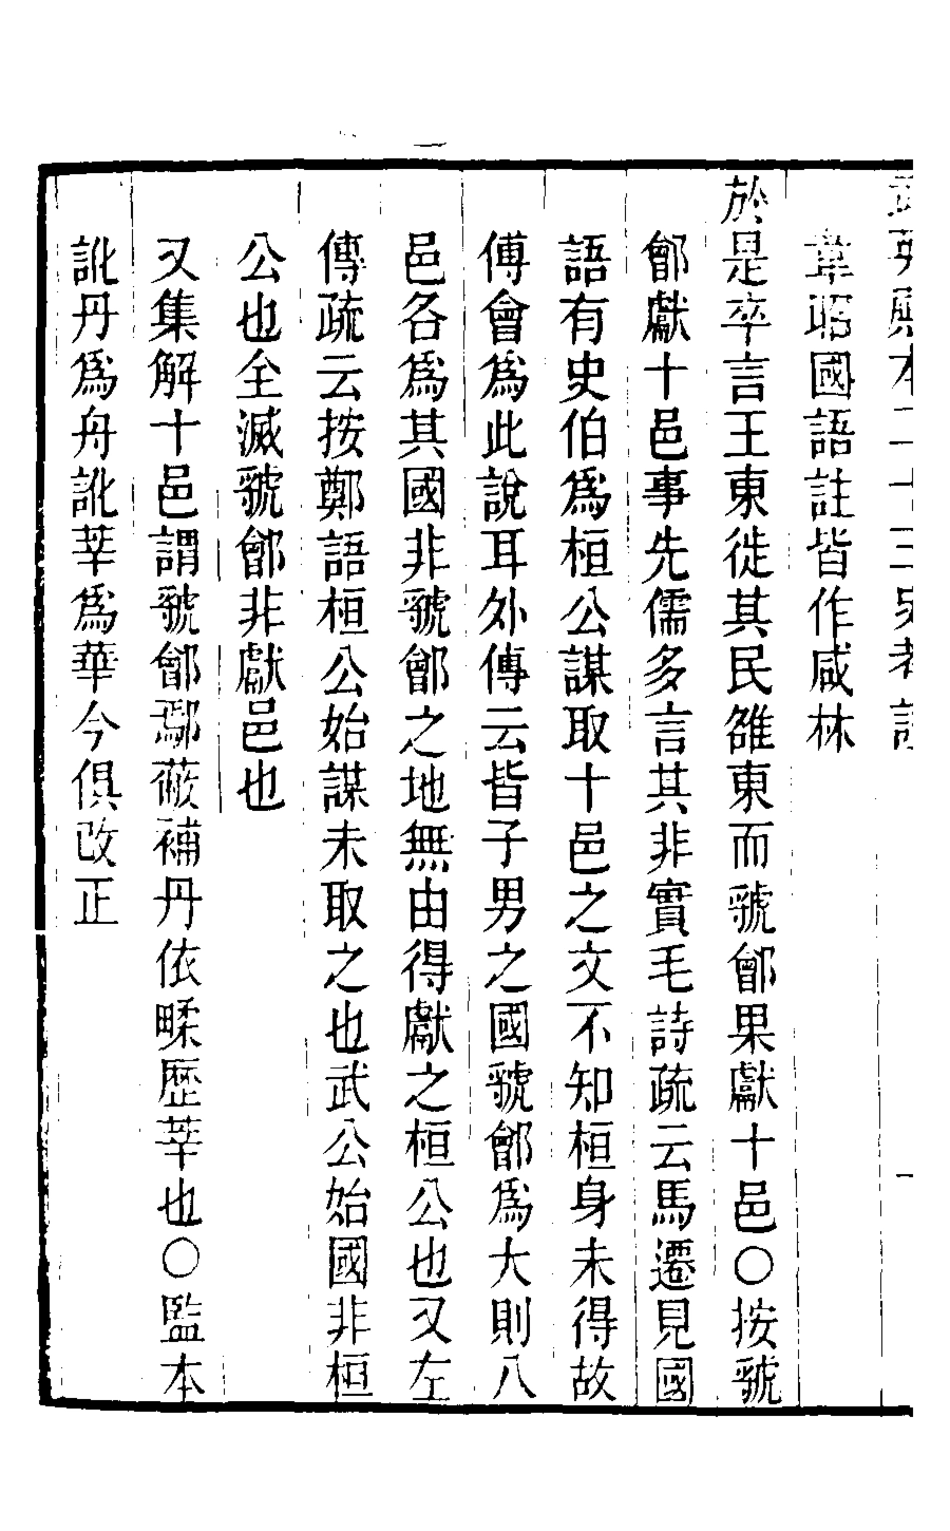 武英殿本二十三史考證
韋昭國語註皆作咸林
於是卒言王東徙其民雒東而虢鄶果獻十邑○按虢
鄶獻十邑事先儒多言其非實毛詩疏云馬遷見國
語有史伯爲桓公謀取十邑之文不知桓身未得故
傅會爲此說耳外傳云皆子男之國虢鄶爲大則八
邑各爲其國非虢鄶之地無由得獻之桓公也又左
傳疏云按鄭語桓公始謀未取之也武公始國非桓
公也全滅虢鄶非獻邑也
又集解十邑謂虢鄶鄢蔽補丹依㽥歷莘也○監本
訛丹爲舟訛莘爲華今俱改正